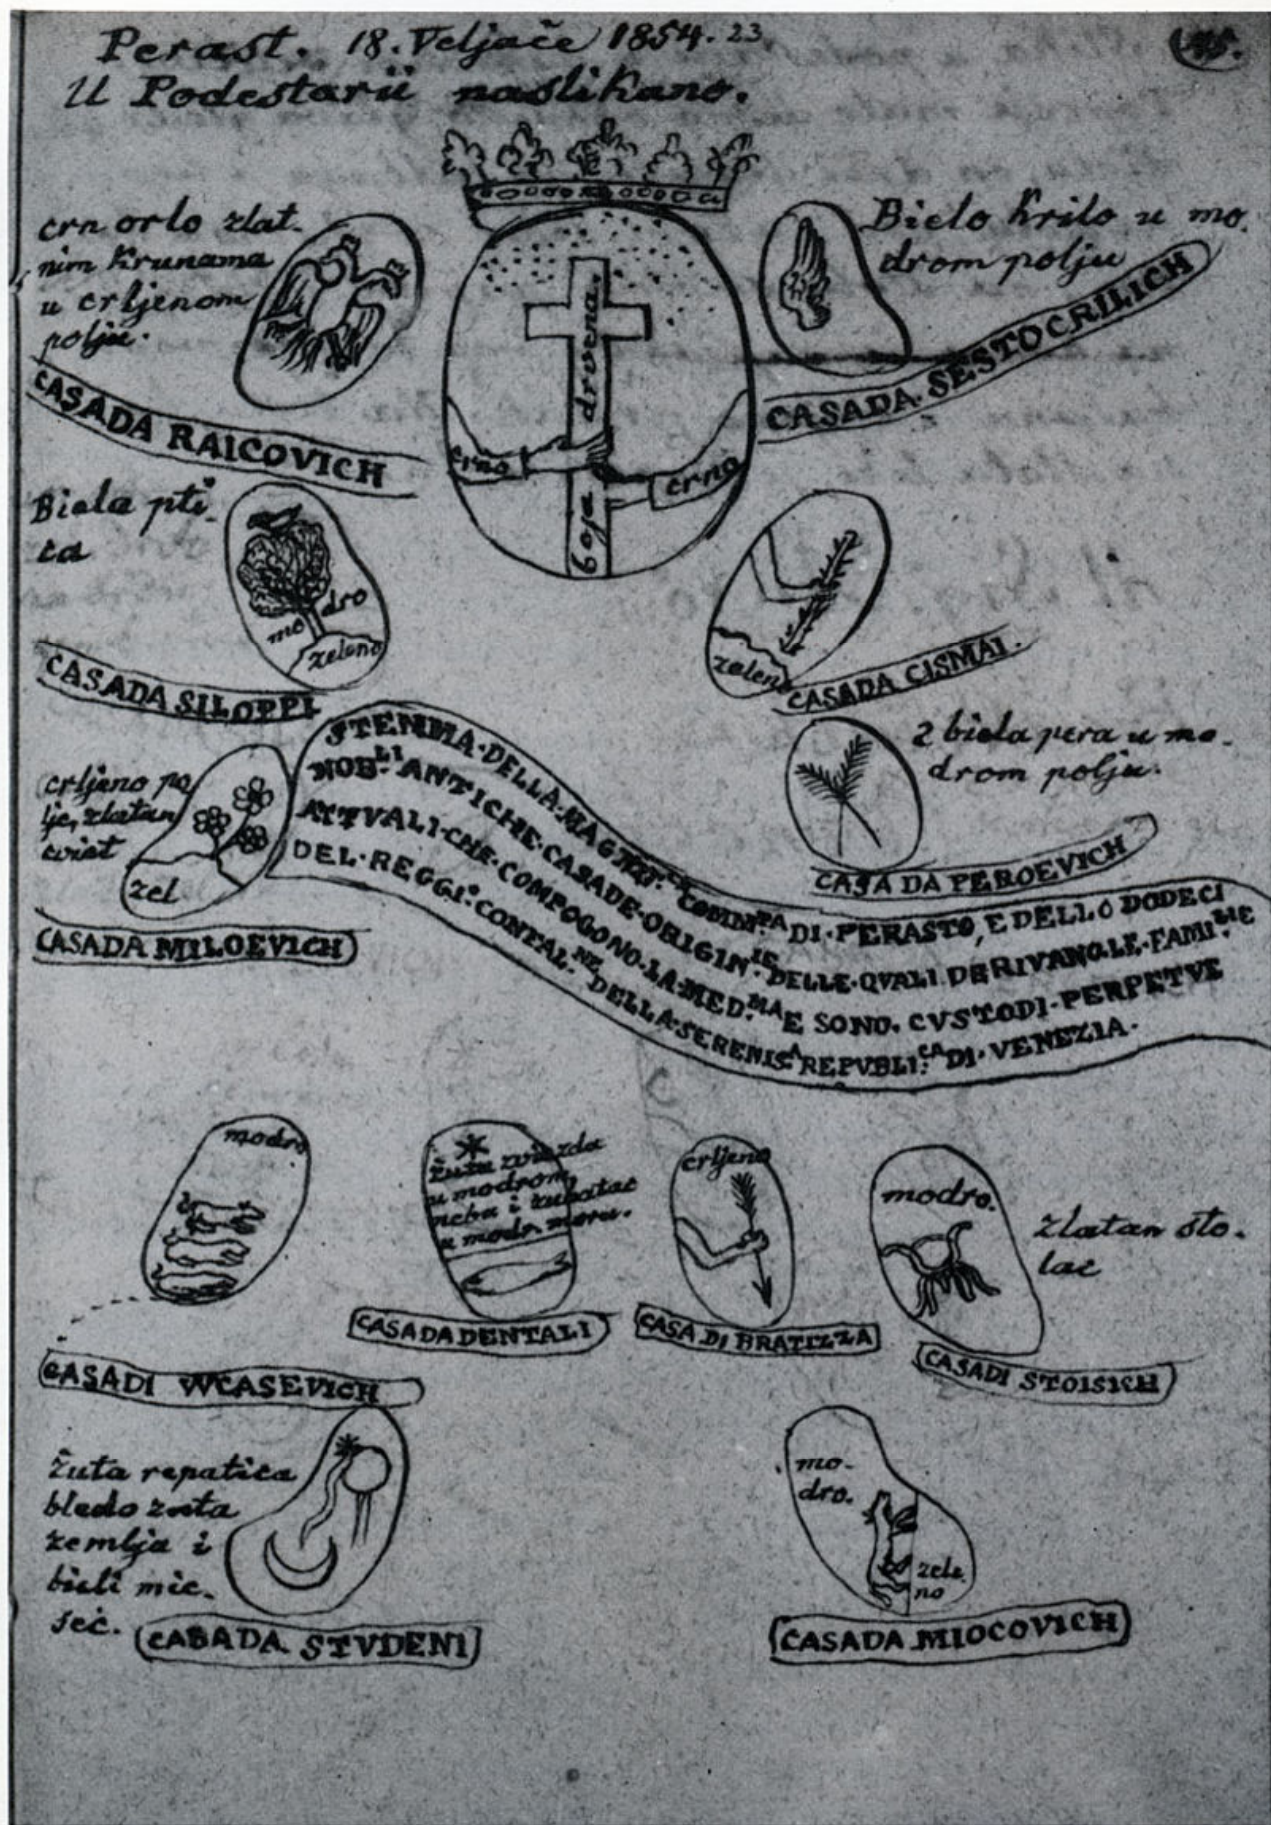 Perast. 18. Veljače 1854. 23
U Podestarii naslikano.
crn orlo zlat-
nim krunama
u crljenom
polju.
CASADA RAICOVICH
drvena
boja
crno
crno
Bielo krilo u mo-
drom polju
CASADA SESTOCRILICH
Biela pti-
ca
mo dro
zeleno
CASADA SILOPPI
zeleno
CASADA CISMAI.
crljeno po
lje, zlatan
cviet
zel
CASADA MILOEVICH
2 biela pera u mo-
drom polju.
CASADA PEROEVICH
STEMMA·DELLA·MAG COMM.TA DI·PERASTO, E DELLO DODECI
NOB.LI ANTICHE·CASADE·ORIGIN.IE DELLE·QVALI DERIVANO·LE·FAMI.
ATTVALI·CHE·COMPOGONO·LA·MED.MA E SONO. CVSTODI·PERPETVE
DEL·REGGI.O CONFAL.NE DELLA·SERENIS.A REPVBLI.CA DI·VENEZIA.
modro
CASADI WCASEVICH
žuta zviezda
u modrom
nebu i zubatac
u modr. moru.
CASADA DENTALI
crljeno
CASA DI BRATIZZA
modro.
zlatan sto-
lac
CASADI STOISICH
žuta repatica
bledo žuta
zemlja i
bieli mie-
sec.
CASADA STVDENI
mo-
dro.
zele
no
CASADA MIOCOVICH